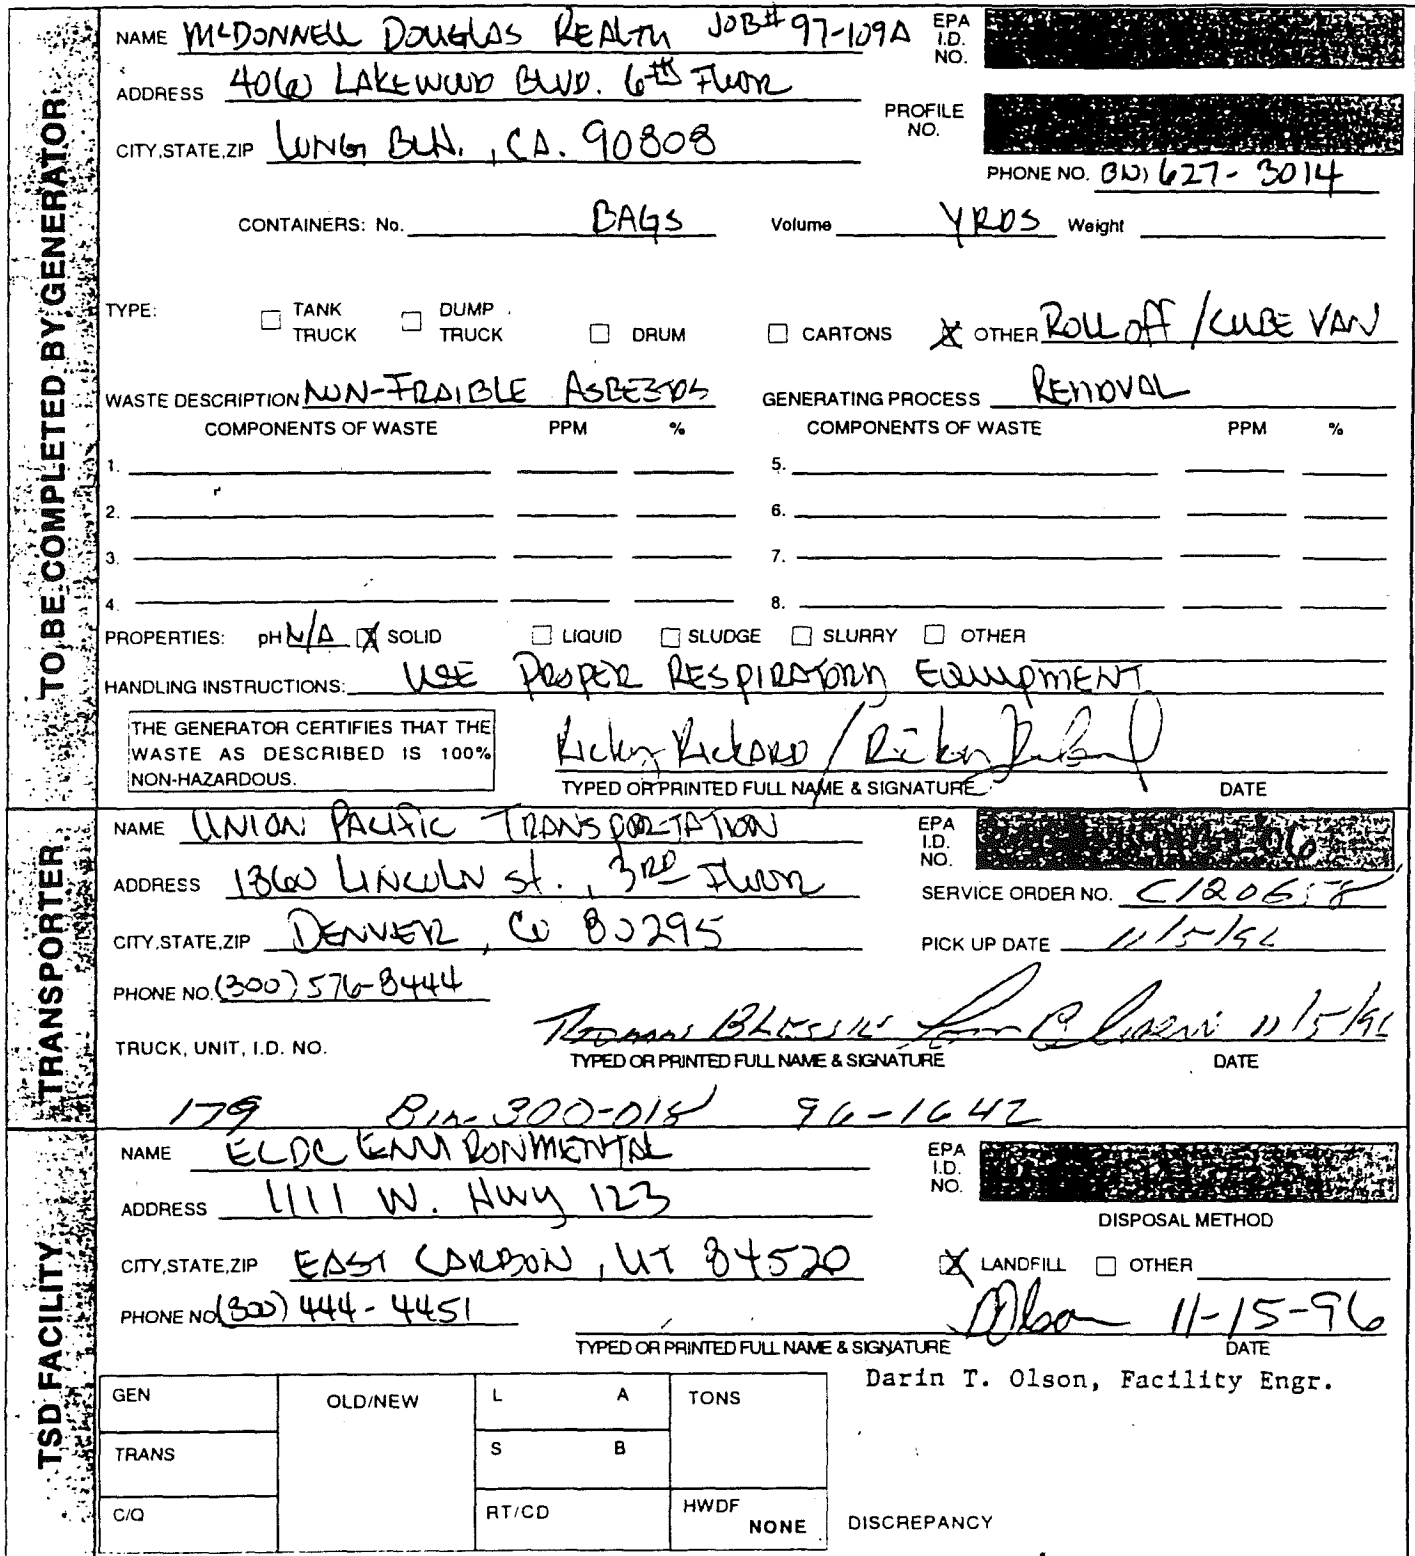 TO BE COMPLETED BY GENERATOR
NAME McDONNELL DOUGLAS REALTY JOB# 97-109A EPA I.D. NO.
ADDRESS 4060 LAKEWOOD BLVD. 6th FLOOR
PROFILE NO.
CITY,STATE,ZIP LONG BCH. , CA. 90808
PHONE NO. 627-3014
CONTAINERS: No. BAGS Volume YRDS Weight
TYPE: TANK TRUCK DUMP TRUCK DRUM CARTONS X OTHER ROLL off / CUBE VAN
WASTE DESCRIPTION NON-FRAIBLE ASBESTOS GENERATING PROCESS REMOVAL
COMPONENTS OF WASTE PPM % COMPONENTS OF WASTE PPM %
1. 5.
2. 6.
3. 7.
4. 8.
PROPERTIES: pH N/A X SOLID LIQUID SLUDGE SLURRY OTHER
HANDLING INSTRUCTIONS: USE PROPER RESPIRATORY EQUIPMENT
THE GENERATOR CERTIFIES THAT THE
WASTE AS DESCRIBED IS 100%
NON-HAZARDOUS.
Ricky Rickard / Ricky Rickard
TYPED OR PRINTED FULL NAME & SIGNATURE DATE
TRANSPORTER
NAME UNION PACIFIC TRANSPORTATION EPA I.D. NO.
ADDRESS 1860 LINCOLN St., 3RD FLOOR
SERVICE ORDER NO.
CITY,STATE,ZIP DENVER, CO 80295
PICK UP DATE 11/5/96
PHONE NO. (800) 576-8444
Thomas 11/5/96
TRUCK, UNIT, I.D. NO.
TYPED OR PRINTED FULL NAME & SIGNATURE DATE
179 Bin-300-018 96-1642
TSD FACILITY
NAME ECDC ENVIRONMENTAL EPA I.D. NO.
ADDRESS 1111 W. Hwy 123
DISPOSAL METHOD
CITY,STATE,ZIP EAST CARBON, UT 84520 X LANDFILL OTHER
PHONE NO (800) 444-4451
DOlson 11-15-96
TYPED OR PRINTED FULL NAME & SIGNATURE DATE
Darin T. Olson, Facility Engr.
GEN OLD/NEW L A TONS
TRANS S B
C/Q RT/CD HWDF NONE DISCREPANCY